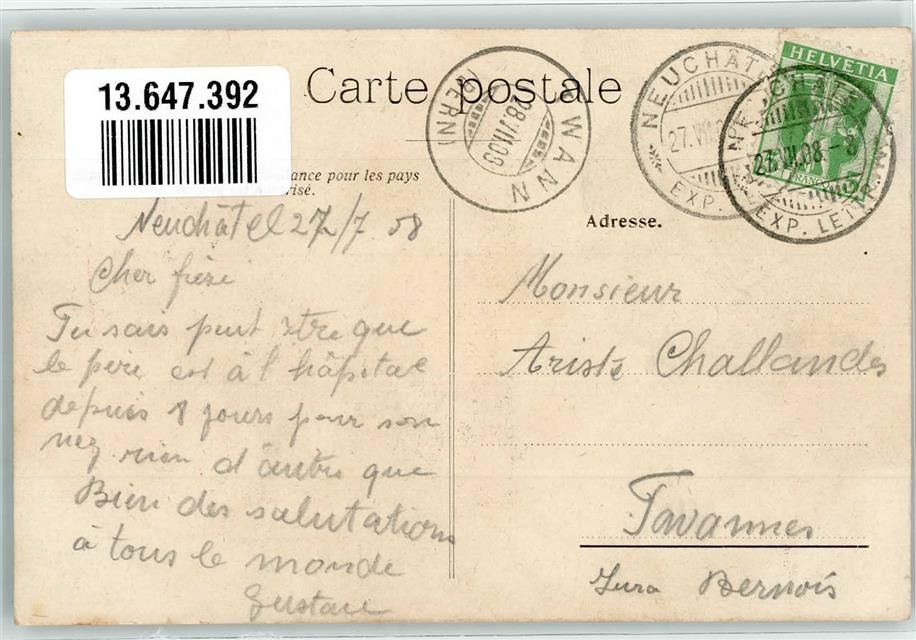 13.647.392
Carte postale
ance pour les pays
risé.
WANN
(BERN)
28.VII.08
NEUCHÂT
27.VII.0
EXP.
HELVETIA
FRANCO
27.VII.08.-8
EXP. LETTR
Adresse.
Neuchâtel 27/7 08
Cher frère
Tu sais peut être que
le père est à l'hôpital
depuis 8 jours pour son
nez rien d'autre que
Bien des salutations
à tous le monde
Gustave
Monsieur
Ariste Challandes
Tavannes
Jura Bernois